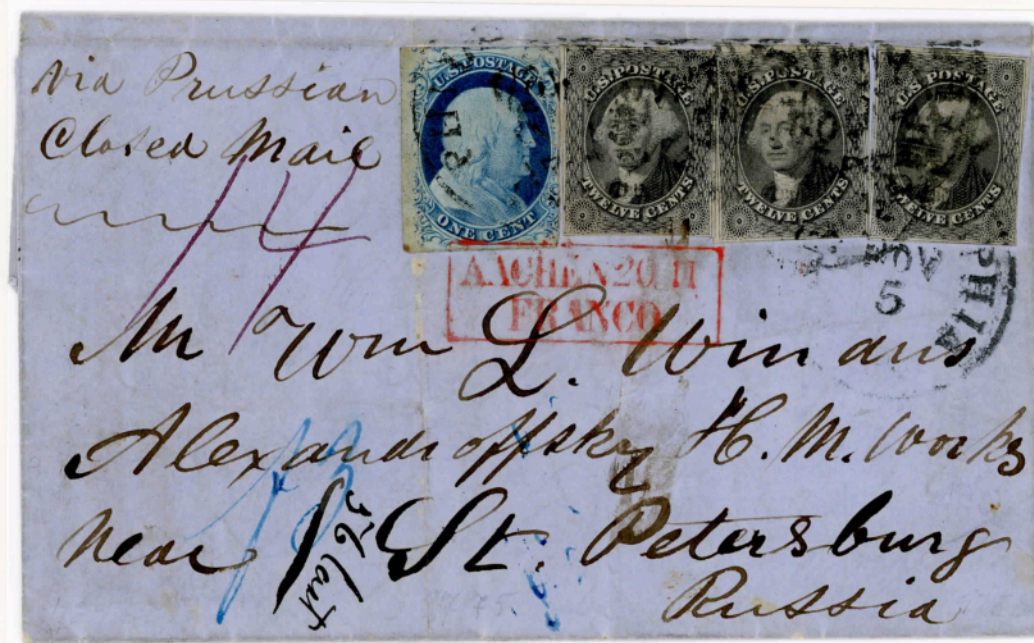 via Prussian
Closed Mail
U.S. POSTAGE
ONE CENT
U.S. POSTAGE
TWELVE CENTS
U.S. POSTAGE
TWELVE CENTS
U.S. POSTAGE
TWELVE CENTS
14
AACHEN 20 11
FRANCO
NOV
5
PHIL
Mr Wm L. Winans
Alexandroffsky H. M. Works
Near St. Petersburg
Russia